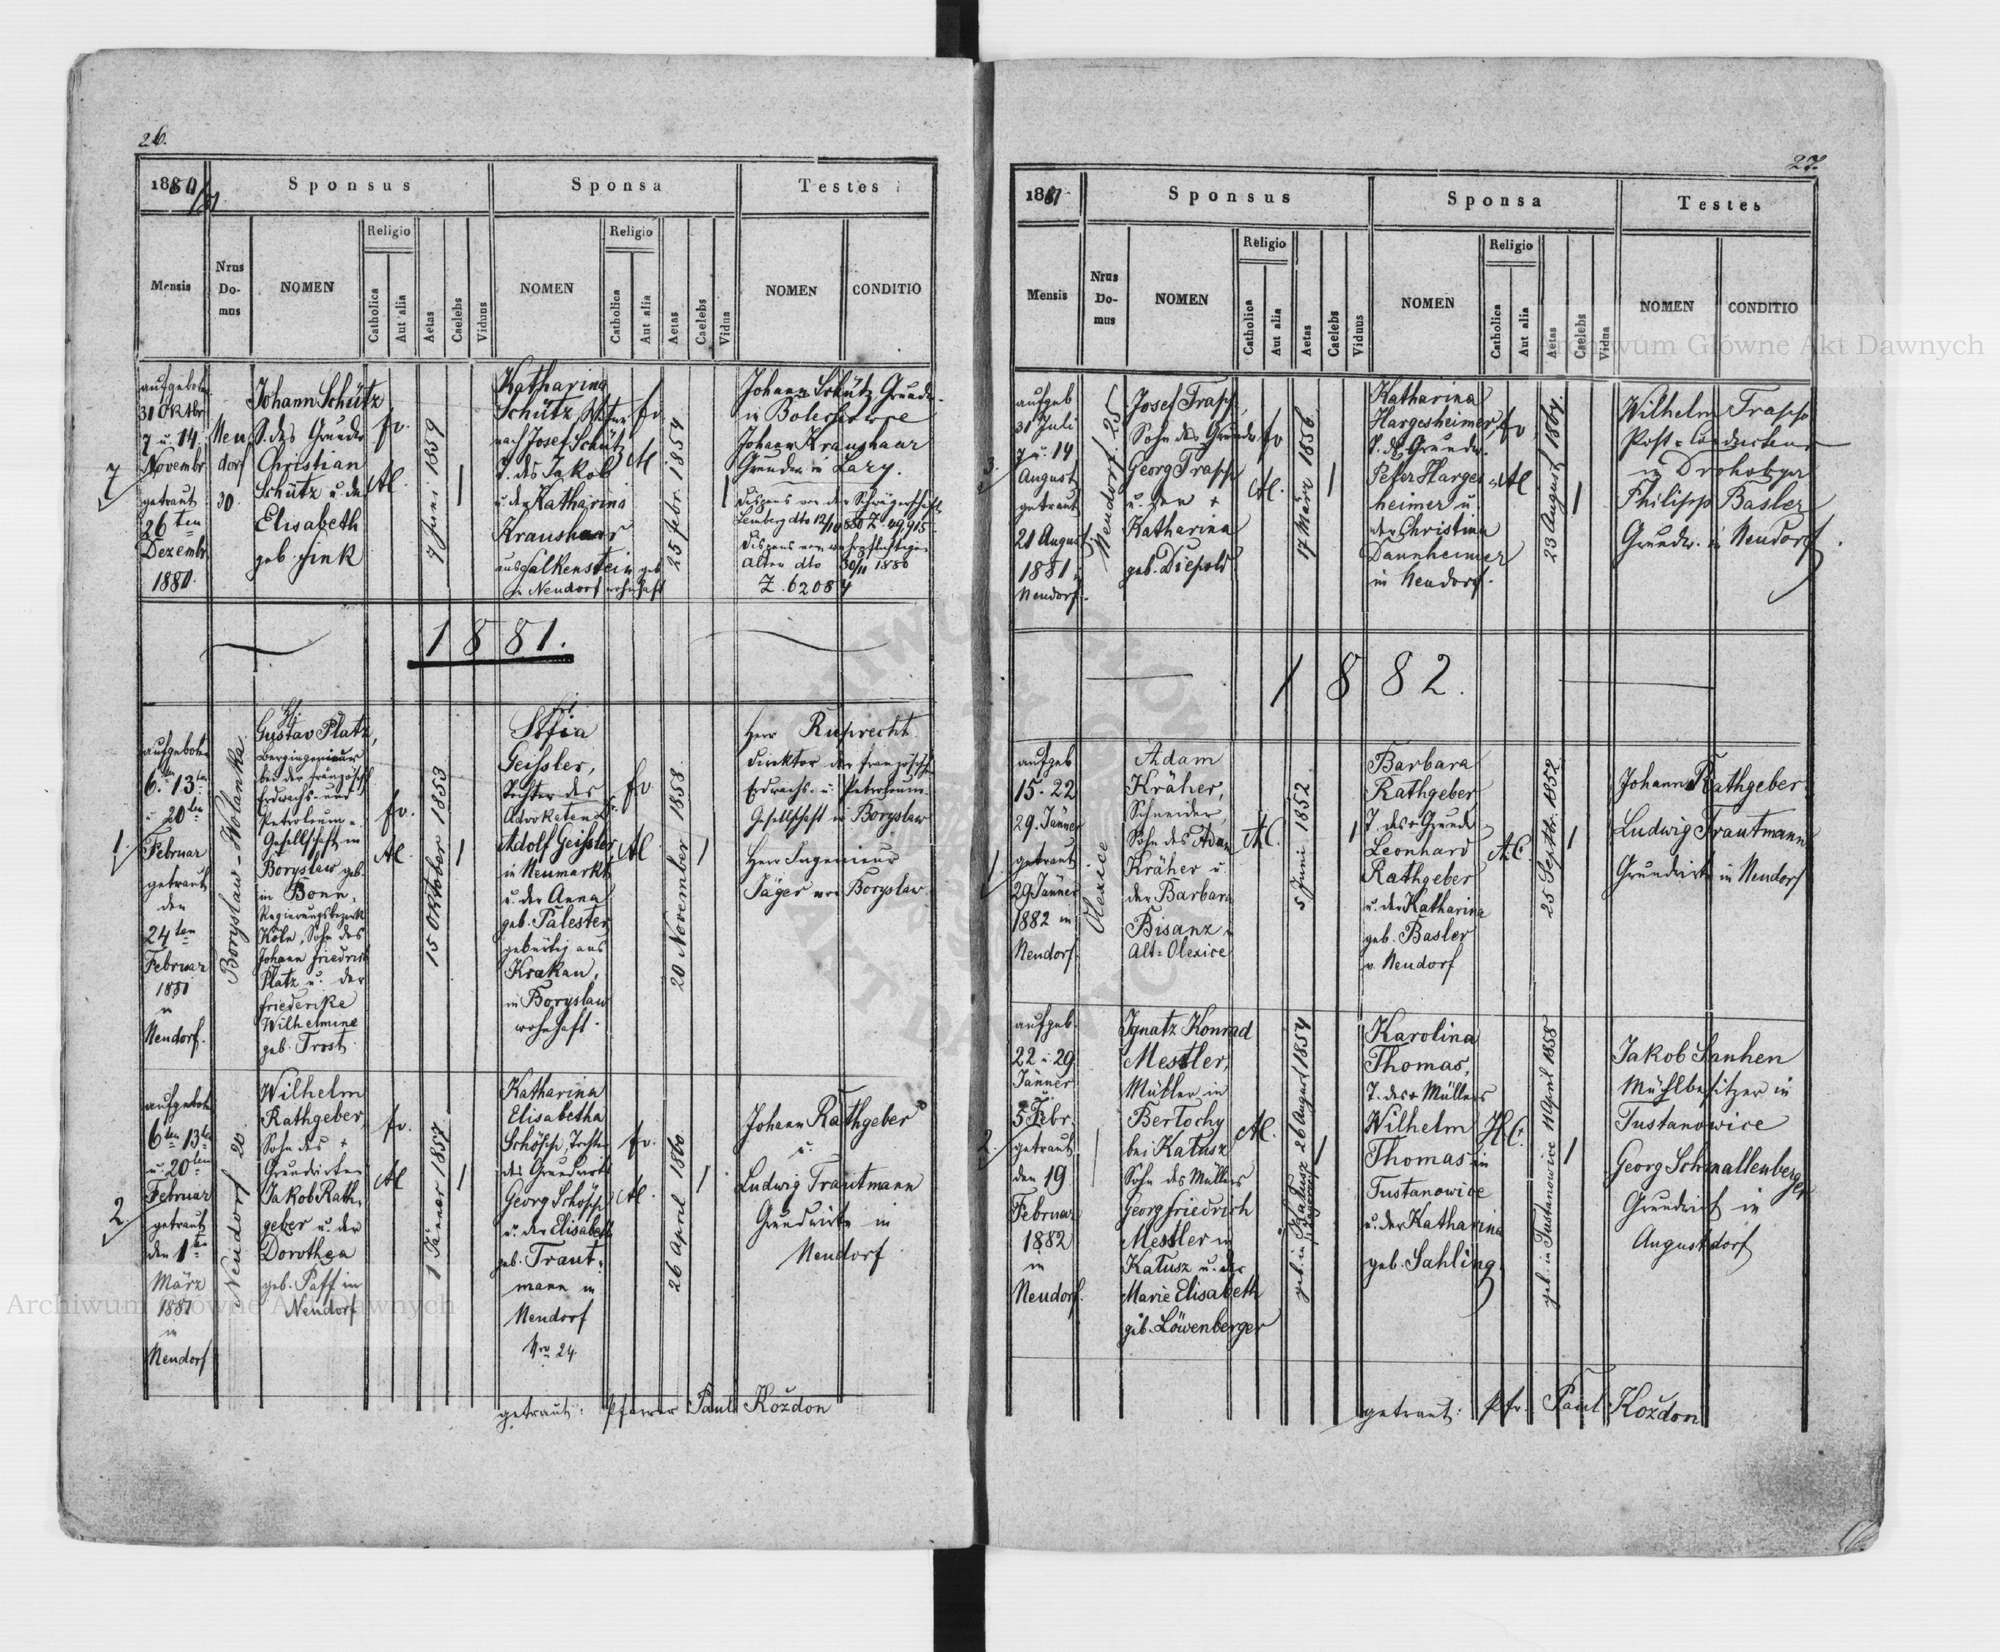 26.
1880/81
Sponsus
Sponsa
Testes
Mensis
Nrus Do-mus
NOMEN
Religio
Catholica
Aut alia
Aetas
Caelebs
Viduus
NOMEN
Religio
Catholica
Aut alia
Aetas
Caelebs
Vidua
NOMEN
CONDITIO
7
aufgeboten
31 Oktbr
7 u. 14.
Novembr
getraut
26ten
Dezembr
1880.
Neu
dorf
30.
Johann Schütz
S. des Grundw
Christian
Schütz u. der
Elisabeth
geb. Fink
ev.
AC.
7 Juni 1859
Katharina
Schütz, Witwe
nach Josef Schütz
T. des Jakob
u. der Katharina
Kraushaar
aus Falkenstein geb
in Neudorf wohnhaft
ev.
AC
25 febr. 1854
Johann Schütz Grundw.
in Bolechowce
Johann Kraushaar
Grundw. in Lary.
Dispens von der Schwägerschaft
Lemberg dto 12/10 880 Z. 49,915
Dispens vom wehrpflichtigen
Alter dto 30/11 1880
Z. 62084
1881.
1.
aufgeboten
6ten 13ten
u 20ten
Februar
getraut
den
24ten
Februar
1881
in
Neudorf.
Boryslaw-Wolanka
Gustav Platz,
Bergingenieur
bei der französisch
Erdwachs- und
Petroleum-
Gesellschaft in
Boryslaw geb.
in Bonn,
Regierungsbezirk
Köln, Sohn des
Johann Friedrich
Platz u. der
Friederike
Wilhelmine
geb. Trost
ev.
AC.
15 Oktober 1853
Sofia
Geissler,
Tochter des
Advokaten Dr.
Adolf Geissler
in Neumarkt
u. der Anna
geb. Palester
gebürtig aus
Krakau,
in Boryslaw
wohnhaft.
ev
AC
20 November 1858.
Herr Ruprecht
Direktor der französisch
Erdwachs- u. Petroleum-
Gesellschaft in Boryslaw
Herr Ingenieur
Jäger von Boryslaw.
2
aufgeboten
6ten 13ten
u. 20ten
Februar
getraut
den 1ten
März
1881
in
Neudorf
Neudorf 20.
Wilhelm
Rathgeber
Sohn des +
Grundwirten
Jakob Rath-
geber u. der
Dorothea
geb. Paff in
Neudorf
ev.
AC
1 Jänner 1857
Katharina
Elisabetha
Schösch, Tochter
des Grundwirts
Georg Schösch
u. der Elisabeth
geb. Traut-
mann in
Neudorf
Nro 24.
ev.
AC.
26 April 1860.
Johann Rathgeber
u.
Ludwig Trautmann
Grundwirte in
Neudorf
getraut: Pfarrer Paul Kozdon
27.
1881
Sponsus
Sponsa
Testes
Mensis
Nrus Do-mus
NOMEN
Religio
Catholica
Aut alia
Aetas
Caelebs
Viduus
NOMEN
Religio
Catholica
Aut alia
Aetas
Caelebs
Vidua
NOMEN
CONDITIO
3.
aufgeb
31 Juli
7 u. 14
August
getraut
21 August
1881 in
Neudorf.
Neudorf 25
Josef Trapp,
Sohn des Grundw
Georg Trapp
u. der +
Katharina
geb. Diepold
ev
AC.
17 März 1856.
Katharina
Hargesheimer,
T. des Grundw.
Peter Harges-
heimer u.
der Christina
Dannheimer
in Neudorf.
ev
AC
23 August 1864.
Wilhelm Trapp
Post-Conducteur
in Drohobycz
Philipp Basler
Grundw. in Neudorf.
1882.
1.
aufgeb
15. 22
29. Jänner
getraut
29 Jänner
1882 in
Neudorf.
Olexice
Adam
Kräher,
Schneider,
Sohn des Adam
Kräher u.
der Barbara
Bisanz
Alt-Olexice
AC.
5 Juni 1852
Barbara
Rathgeber
T. des + Grundw
Leonhard
Rathgeber
u. der Katharina
geb. Basler
v. Neudorf
AC.
25 Septbr. 1852
Johann Rathgeber.
Ludwig Trautmann
Grundwirte in Neudorf
2.
aufgeb.
22 u. 29.
Jänner
5 Febr.
getraut
den 19
Februar
1882
in
Neudorf.
Ignatz Konrad
Messler,
Müller in
Bertochy
bei Katusz
Sohn des Müllers
Georg Friedrich
Messler in
Katusz u. der
Marie Elisabeth
geb. Löwenberger
AC.
geb. in Katusz 26 August 1854
Karolina
Thomas,
T. des + Müllers
Wilhelm
Thomas in
Tustanowice
u. der Katharina
geb. Sahling.
HC.
geb. in Tustanowice 11 April 1858
Jakob Sanhen
Mühlbesitzer in
Tustanowice
Georg Schmallenberger
Grundwirt in
Augustdorf
getraut: Pfr. Paul Kozdon
Archiwum Główne Akt Dawnych
Archiwum Główne Akt Dawnych